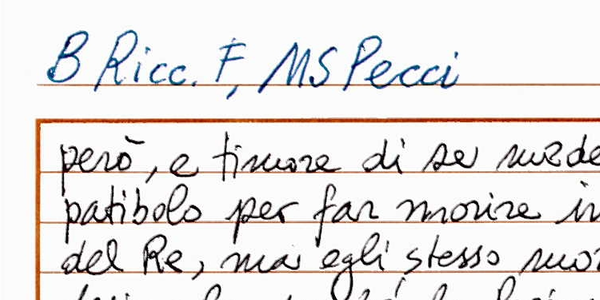 B Ricc. F, MS Pecci
però, e timore di se
patibolo per far morire
del Re, ma egli stesso